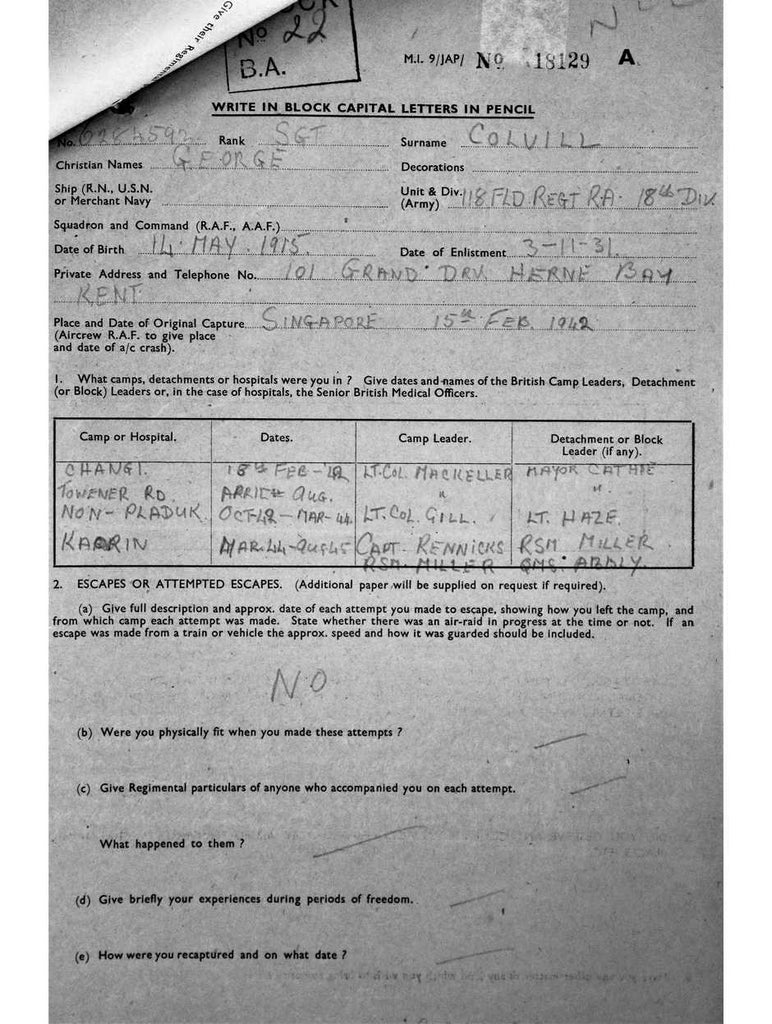 Give their Regimental
No 22
B.A.
M.I. 9/JAP/ No 18129 A
WRITE IN BLOCK CAPITAL LETTERS IN PENCIL
No. Rank SGT Surname COLVILL
Christian Names GEORGE Decorations
Ship (R.N., U.S.N. or Merchant Navy
Unit & Div. (Army) 118 FLD REGT RA. 18th DIV
Squadron and Command (R.A.F., A.A.F.)
Date of Birth 14. MAY. 1915. Date of Enlistment 3-11-31.
Private Address and Telephone No. 101 GRAND DRV HERNE BAY
KENT
Place and Date of Original Capture SINGAPORE 15th FEB. 1942
(Aircrew R.A.F. to give place
and date of a/c crash).
1. What camps, detachments or hospitals were you in ? Give dates and names of the British Camp Leaders, Detachment
(or Block) Leaders or, in the case of hospitals, the Senior British Medical Officers.
Camp or Hospital. Dates. Camp Leader. Detachment or Block Leader (if any).
CHANGI. 18th FEB-42 LT.COL. MACKELLER MAYOR CATHIE
TOWENER RD. AUG. " "
NON-PLADUK. OCT 42-MAR-44 LT.COL. GILL. LT. HAZE.
KAORIN MAR.44-AUG45 CAPT. RENNICKS RSM. MILLER
RSM. MILLER QMS.
2. ESCAPES OR ATTEMPTED ESCAPES. (Additional paper will be supplied on request if required).
(a) Give full description and approx. date of each attempt you made to escape, showing how you left the camp, and
from which camp each attempt was made. State whether there was an air-raid in progress at the time or not. If an
escape was made from a train or vehicle the approx. speed and how it was guarded should be included.
NO
(b) Were you physically fit when you made these attempts ?
(c) Give Regimental particulars of anyone who accompanied you on each attempt.
What happened to them ?
(d) Give briefly your experiences during periods of freedom.
(e) How were you recaptured and on what date ?